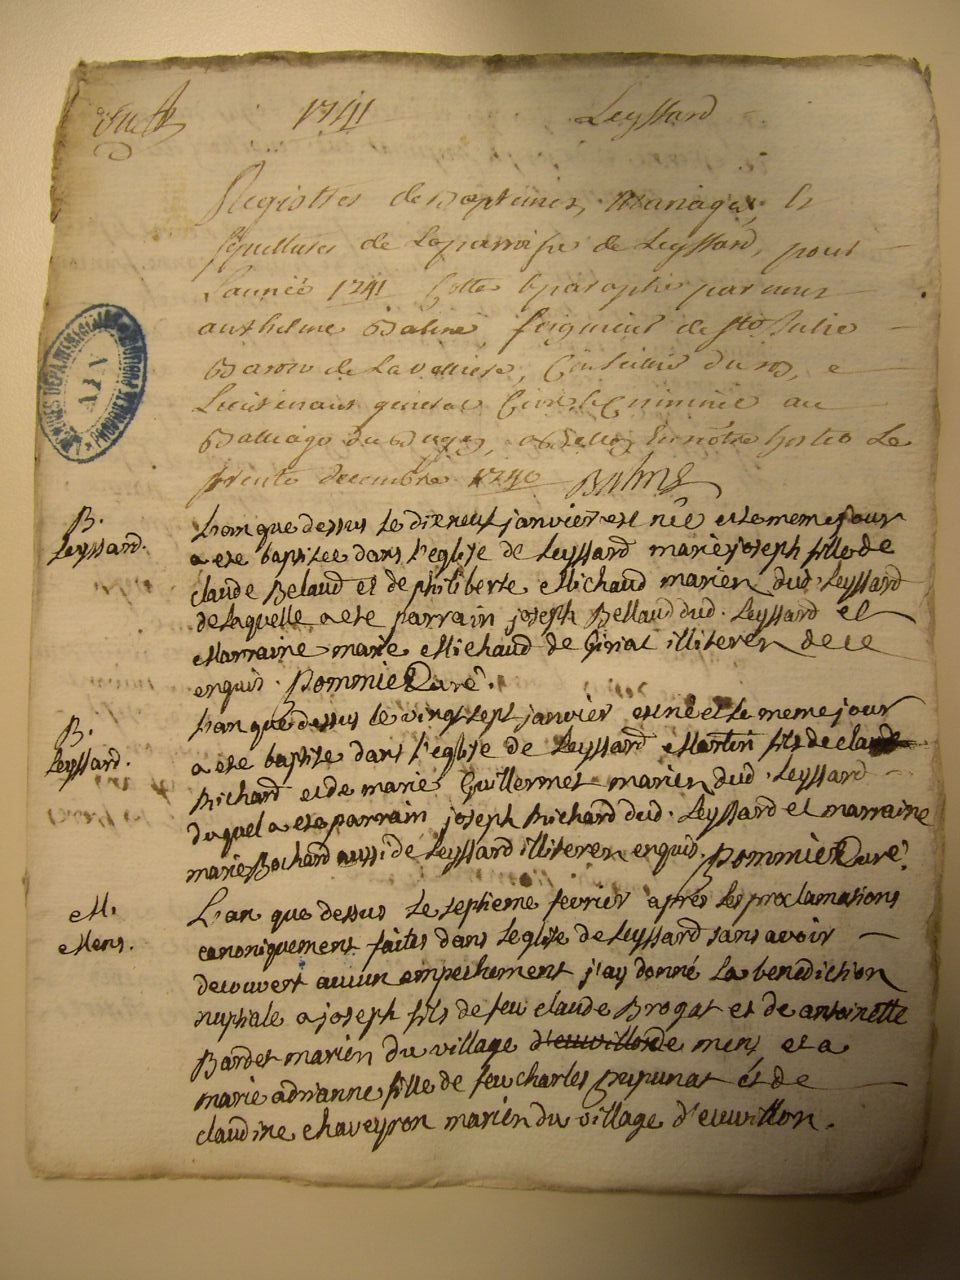 1741 Leyssard
Registres de Baptemes, Mariages, et
sepultures de la parroisse de Leyssard, pour
L'année 1741 Cotté et paraphé par nous
anthelme Balme, seigneur de ste Julie
Baron de La velliere, Conseiller du roy, et
Lieutenant general Civil et Criminel au
Balliage du Bugey, a Belley En nôtre hostel Le
trente decembre 1740 Balme
ARCHIVES DÉPARTEMENTALES
AIN
PROPRIÉTÉ PUBLIQUE
B.
Leyssard.
L'an que dessus le dixneuf janvier est née et le meme jour
a ete baptisee dans l'eglise de Leyssard marie joseph fille de
claude Belaud et de philiberte Michaud mariez dud. Leyssard
de laquelle a ete parrain joseph Bellaud dud. Leyssard et
Marraine marie Michaud de illiterez de ce
enquis. Pommier Curé.
B.
Leyssard.
L'an que dessus le vingt sept janvier est né et le meme jour
a ete baptise dans l'eglise de Leyssard Martin fils de claude
Richard et de marie Guillermet mariez dud. Leyssard
duquel a ete parrain joseph Richard dud. Leyssard et marraine
marie Bochard aussi de Leyssard illiterez enquis. Pommier Curé.
M.
Mens.
L'an que dessus le septieme fevrier aprés les proclamations
canoniquement faites dans l'eglise de Leyssard sans avoir
decouvert aucun empechement j'ay donné la benediction
nuptiale a joseph fils de feu claude Brogat et de antoinette
Bardet mariez du village de mens et a
marie adrianne fille de feu charles et de
claudine chaveyron mariez du village d'euvillon.